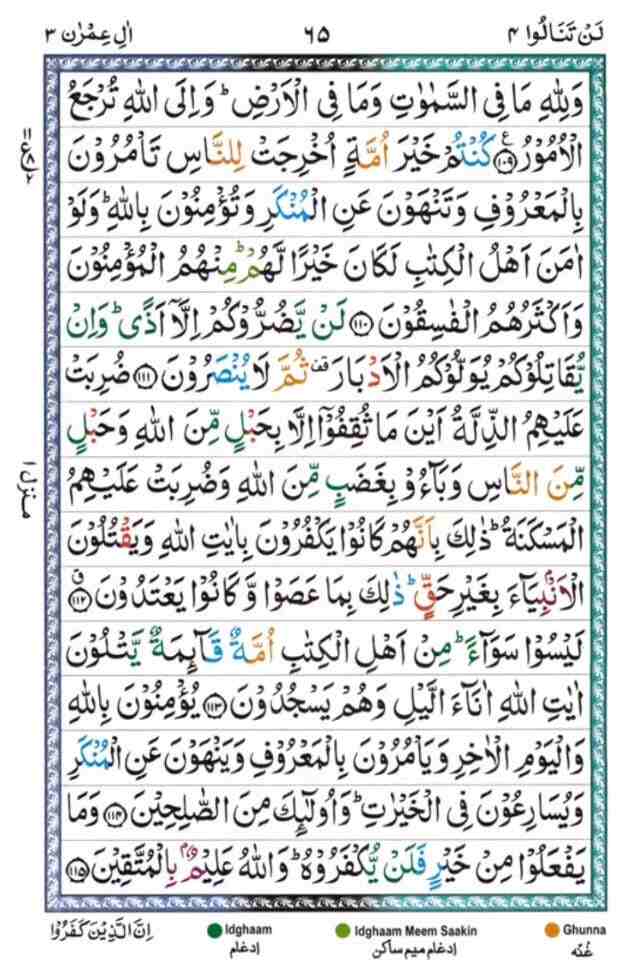 لَنْ تَنَالُوا ٤ ٦٥ اٰلِ عِمْرٰن ٣
وَلِلّٰهِ مَا فِی السَّمٰوٰتِ وَمَا فِی الْاَرْضِ ؕ وَاِلَی اللّٰهِ تُرْجَعُ
الْاُمُوْرُ ﴿۱۰۹﴾ كُنْتُمْ خَیْرَ اُمَّةٍ اُخْرِجَتْ لِلنَّاسِ تَاْمُرُوْنَ
بِالْمَعْرُوْفِ وَتَنْهَوْنَ عَنِ الْمُنْكَرِ وَتُؤْمِنُوْنَ بِاللّٰهِ ؕ وَلَوْ
اٰمَنَ اَهْلُ الْكِتٰبِ لَكَانَ خَیْرًا لَّهُمْ ؕ مِنْهُمُ الْمُؤْمِنُوْنَ
وَاَكْثَرُهُمُ الْفٰسِقُوْنَ ﴿۱۱۰﴾ لَنْ یَّضُرُّوْكُمْ اِلَّاۤ اَذًی ؕ وَاِنْ
یُّقَاتِلُوْكُمْ یُوَلُّوْكُمُ الْاَدْبَارَ ۫ ثُمَّ لَا یُنْصَرُوْنَ ﴿۱۱۱﴾ ضُرِبَتْ
عَلَیْهِمُ الذِّلَّةُ اَیْنَ مَا ثُقِفُوْۤا اِلَّا بِحَبْلٍ مِّنَ اللّٰهِ وَحَبْلٍ
مِّنَ النَّاسِ وَبَآءُوْ بِغَضَبٍ مِّنَ اللّٰهِ وَضُرِبَتْ عَلَیْهِمُ
الْمَسْكَنَةُ ؕ ذٰلِكَ بِاَنَّهُمْ كَانُوْا یَكْفُرُوْنَ بِاٰیٰتِ اللّٰهِ وَیَقْتُلُوْنَ
الْاَنْۢبِیَآءَ بِغَیْرِ حَقٍّ ؕ ذٰلِكَ بِمَا عَصَوْا وَّكَانُوْا یَعْتَدُوْنَ ﴿۱۱۲﴾
لَیْسُوْا سَوَآءً ؕ مِنْ اَهْلِ الْكِتٰبِ اُمَّةٌ قَآئِمَةٌ یَّتْلُوْنَ
اٰیٰتِ اللّٰهِ اٰنَآءَ الَّیْلِ وَهُمْ یَسْجُدُوْنَ ﴿۱۱۳﴾ یُؤْمِنُوْنَ بِاللّٰهِ
وَالْیَوْمِ الْاٰخِرِ وَیَاْمُرُوْنَ بِالْمَعْرُوْفِ وَیَنْهَوْنَ عَنِ الْمُنْكَرِ
وَیُسَارِعُوْنَ فِی الْخَیْرٰتِ ؕ وَاُولٰٓئِكَ مِنَ الصّٰلِحِیْنَ ﴿۱۱۴﴾ وَمَا
یَفْعَلُوْا مِنْ خَیْرٍ فَلَنْ یُّكْفَرُوْهُ ؕ وَاللّٰهُ عَلِیْمٌۢ بِالْمُتَّقِیْنَ ﴿۱۱۵﴾
منزل ۱
اِنَّ الَّذِیْنَ كَفَرُوْا
Idghaam
اِدغام
Idghaam Meem Saakin
اِدغام میم ساکن
Ghunna
غُنّه